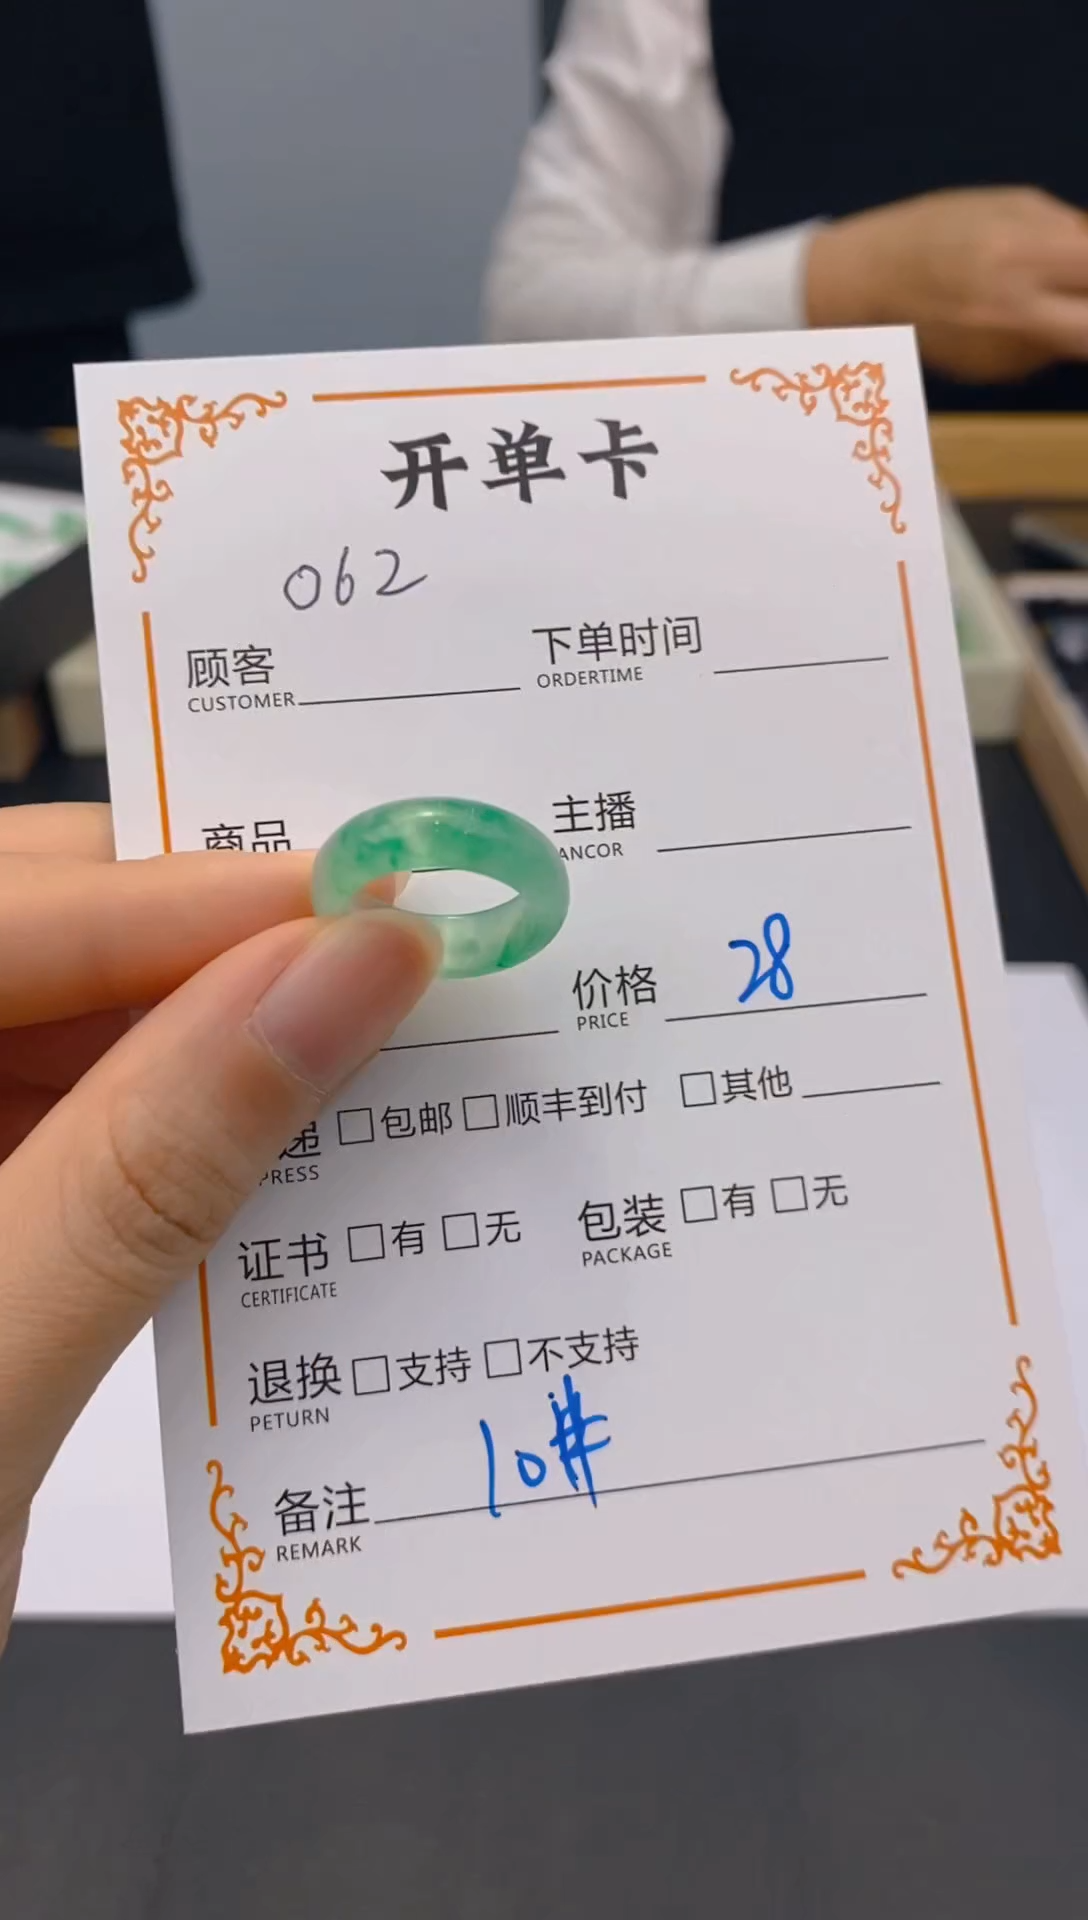 开单卡
062
顾客 下单时间
CUSTOMER ORDERTIME
商品 主播
ANCOR
价格 28
PRICE
递 □包邮 □顺丰到付 □其他
PRESS
证书 □有 □无 包装 □有 □无
CERTIFICATE PACKAGE
退换 □支持 □不支持
PETURN
备注 10#
REMARK